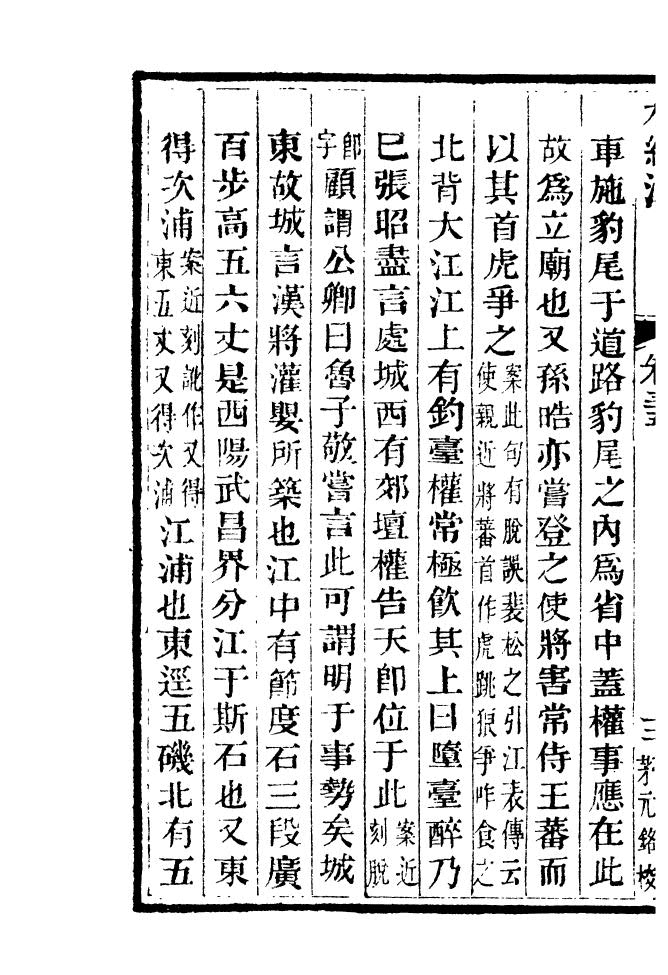 水經注
卷三十五
三 茅元銘校
車施豹尾于道路豹尾之內爲省中蓋權事應在此
故爲立廟也又孫晧亦嘗登之使將害常侍王蕃而
以其首虎爭之案此句有脫誤裴松之引江表傳云使親近將蕃首作虎跳狼爭咋食之
北背大江江上有釣臺權常極飲其上曰墮臺醉乃
已張昭盡言處城西有郊壇權告天卽位于此案近刻脫
卽字顧謂公卿曰魯子敬嘗言此可謂明于事勢矣城
東故城言漢將灌嬰所築也江中有節度石三段廣
百步高五六丈是西陽武昌界分江于斯石也又東
得次浦案近刻訛作又得東五丈又得次浦江浦也東逕五磯北有五